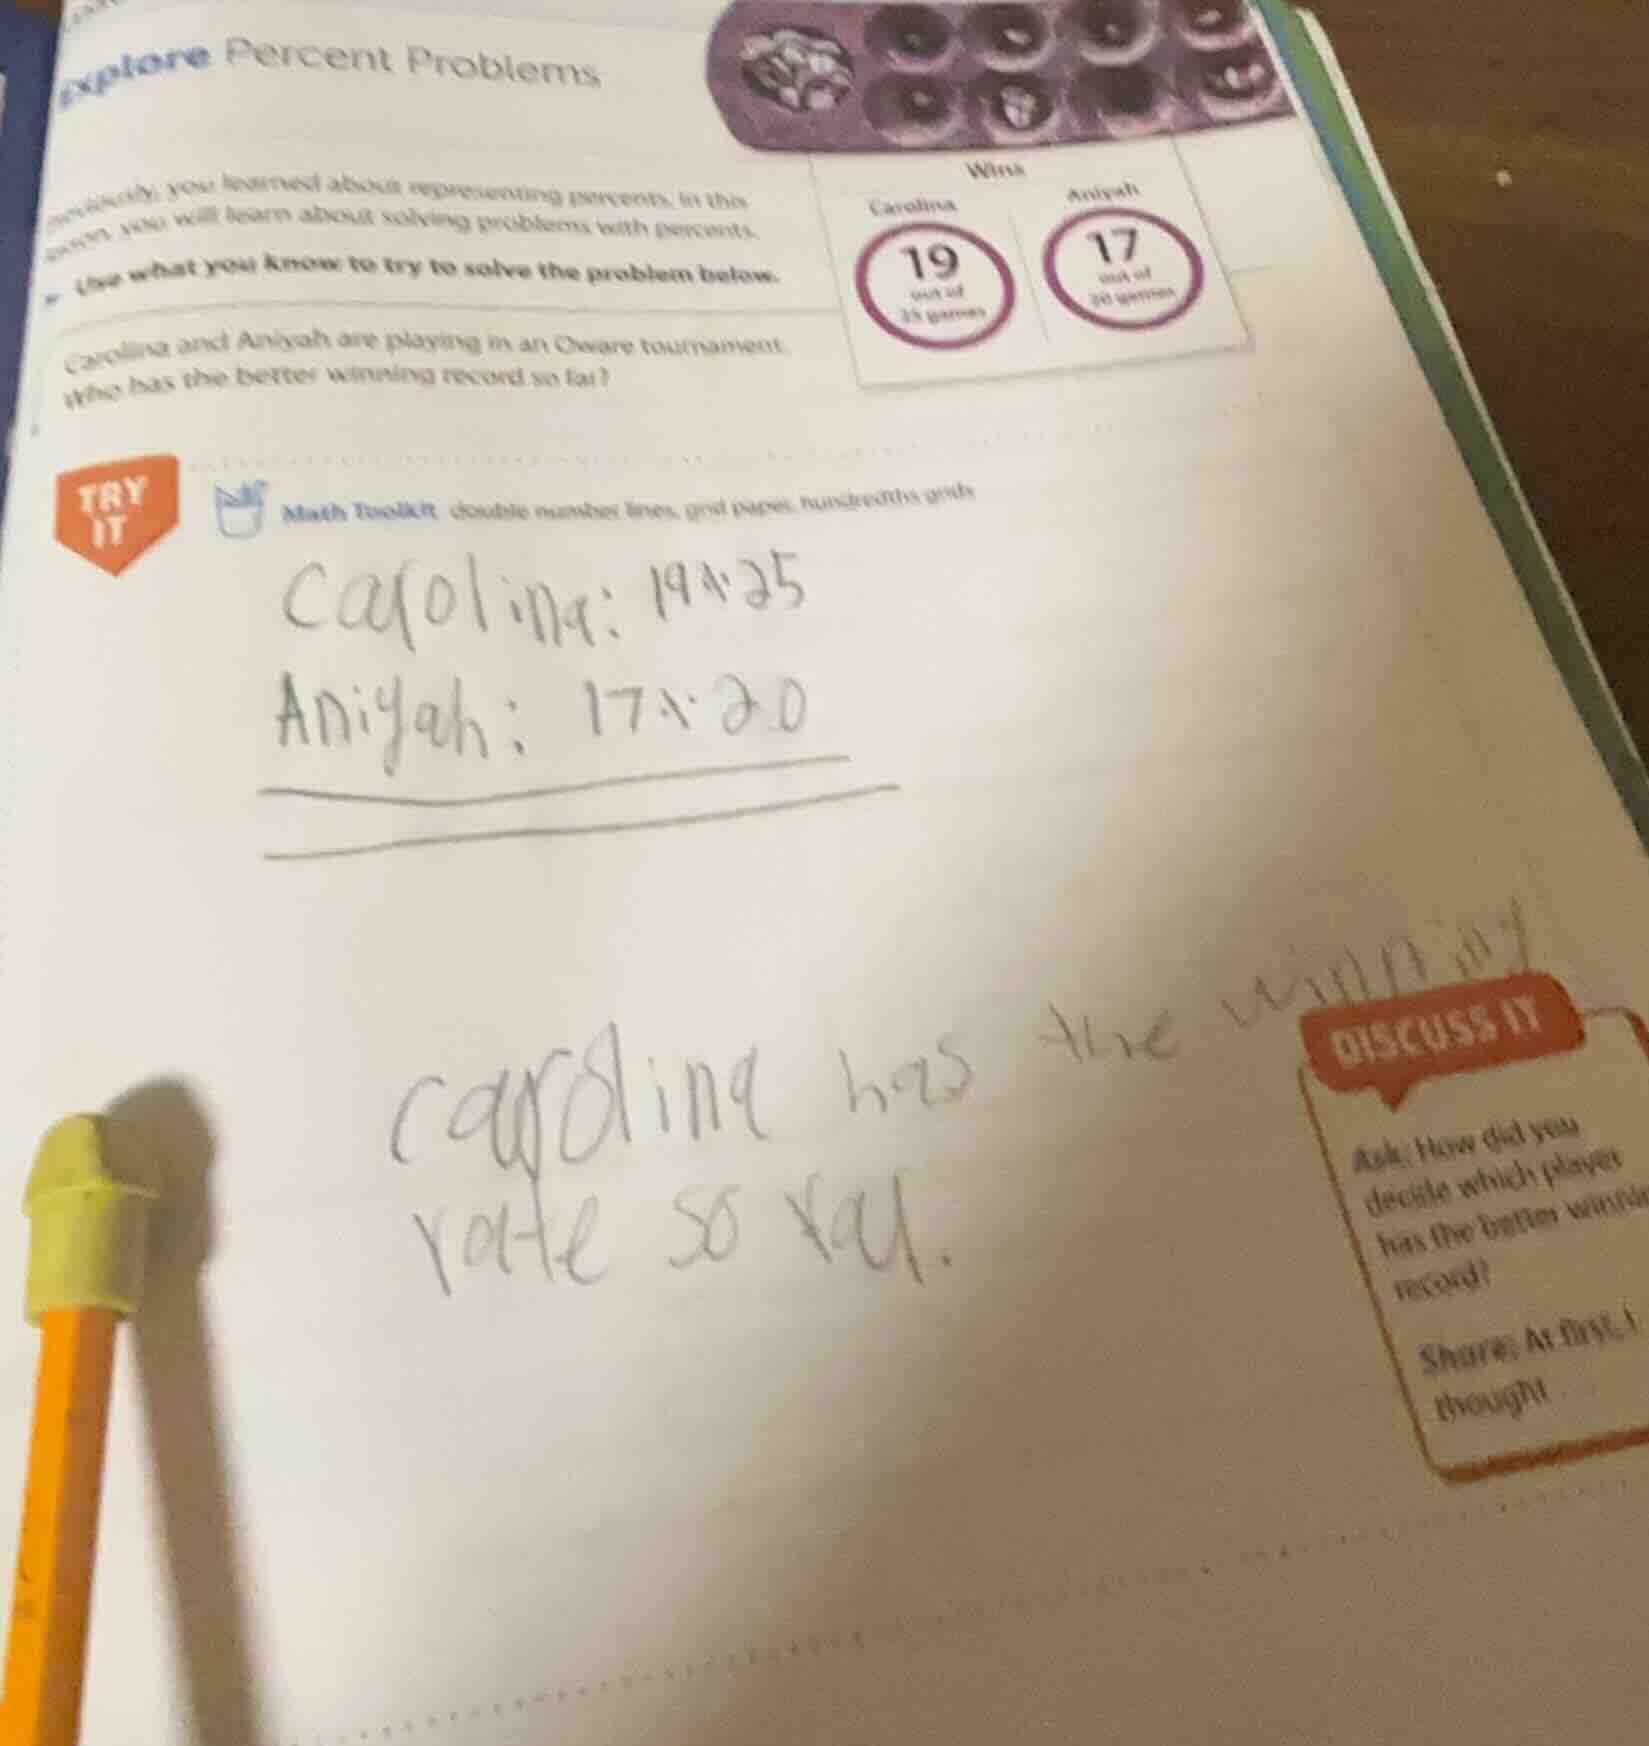 Explore Percent Problems
Previously, you learned about representing percents. In this
lesson, you will learn about solving problems with percents.
Use what you know to try to solve the problem below.
Carolina and Aniyah are playing in an Oware tournament.
Who has the better winning record so far?
Wins
Carolina
19
out of
25 games
Aniyah
17
out of
20 games
TRY
IT
Math Toolkit double number lines, grid paper, hundredths grids
Carolina: 19 25
Aniyah: 17 20
carolina has the winning
rate so far.
DISCUSS IT
Ask: How did you
decide which player
has the better winning
record?
Share: At first, I
thought